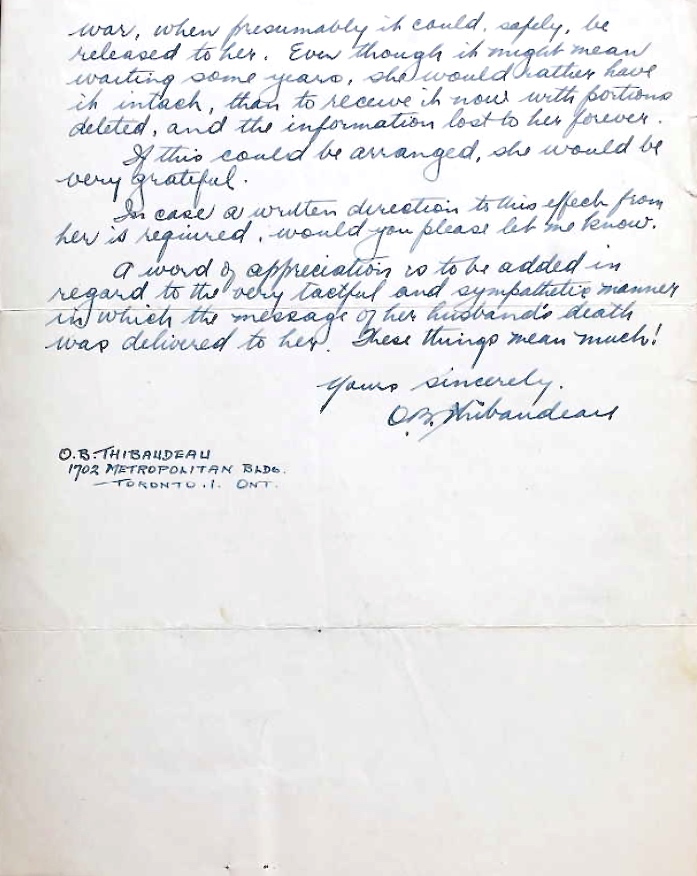 war, when presumably it could, safely, be
released to her. Even though it might mean
waiting some years, she would rather have
it intact, than to receive it now with portions
deleted, and the information lost to her forever.
If this could be arranged, she would be
very grateful.
In case a written direction to this effect from
her is required, would you please let me know.
A word of appreciation is to be added in
regard to the very tactful and sympathetic manner
in which the message of her husband's death
was delivered to her. These things mean much!
Yours sincerely.
O.B. Thibaudeau
O.B. THIBAUDEAU
1702 METROPOLITAN BLDG.
—TORONTO.1. ONT.